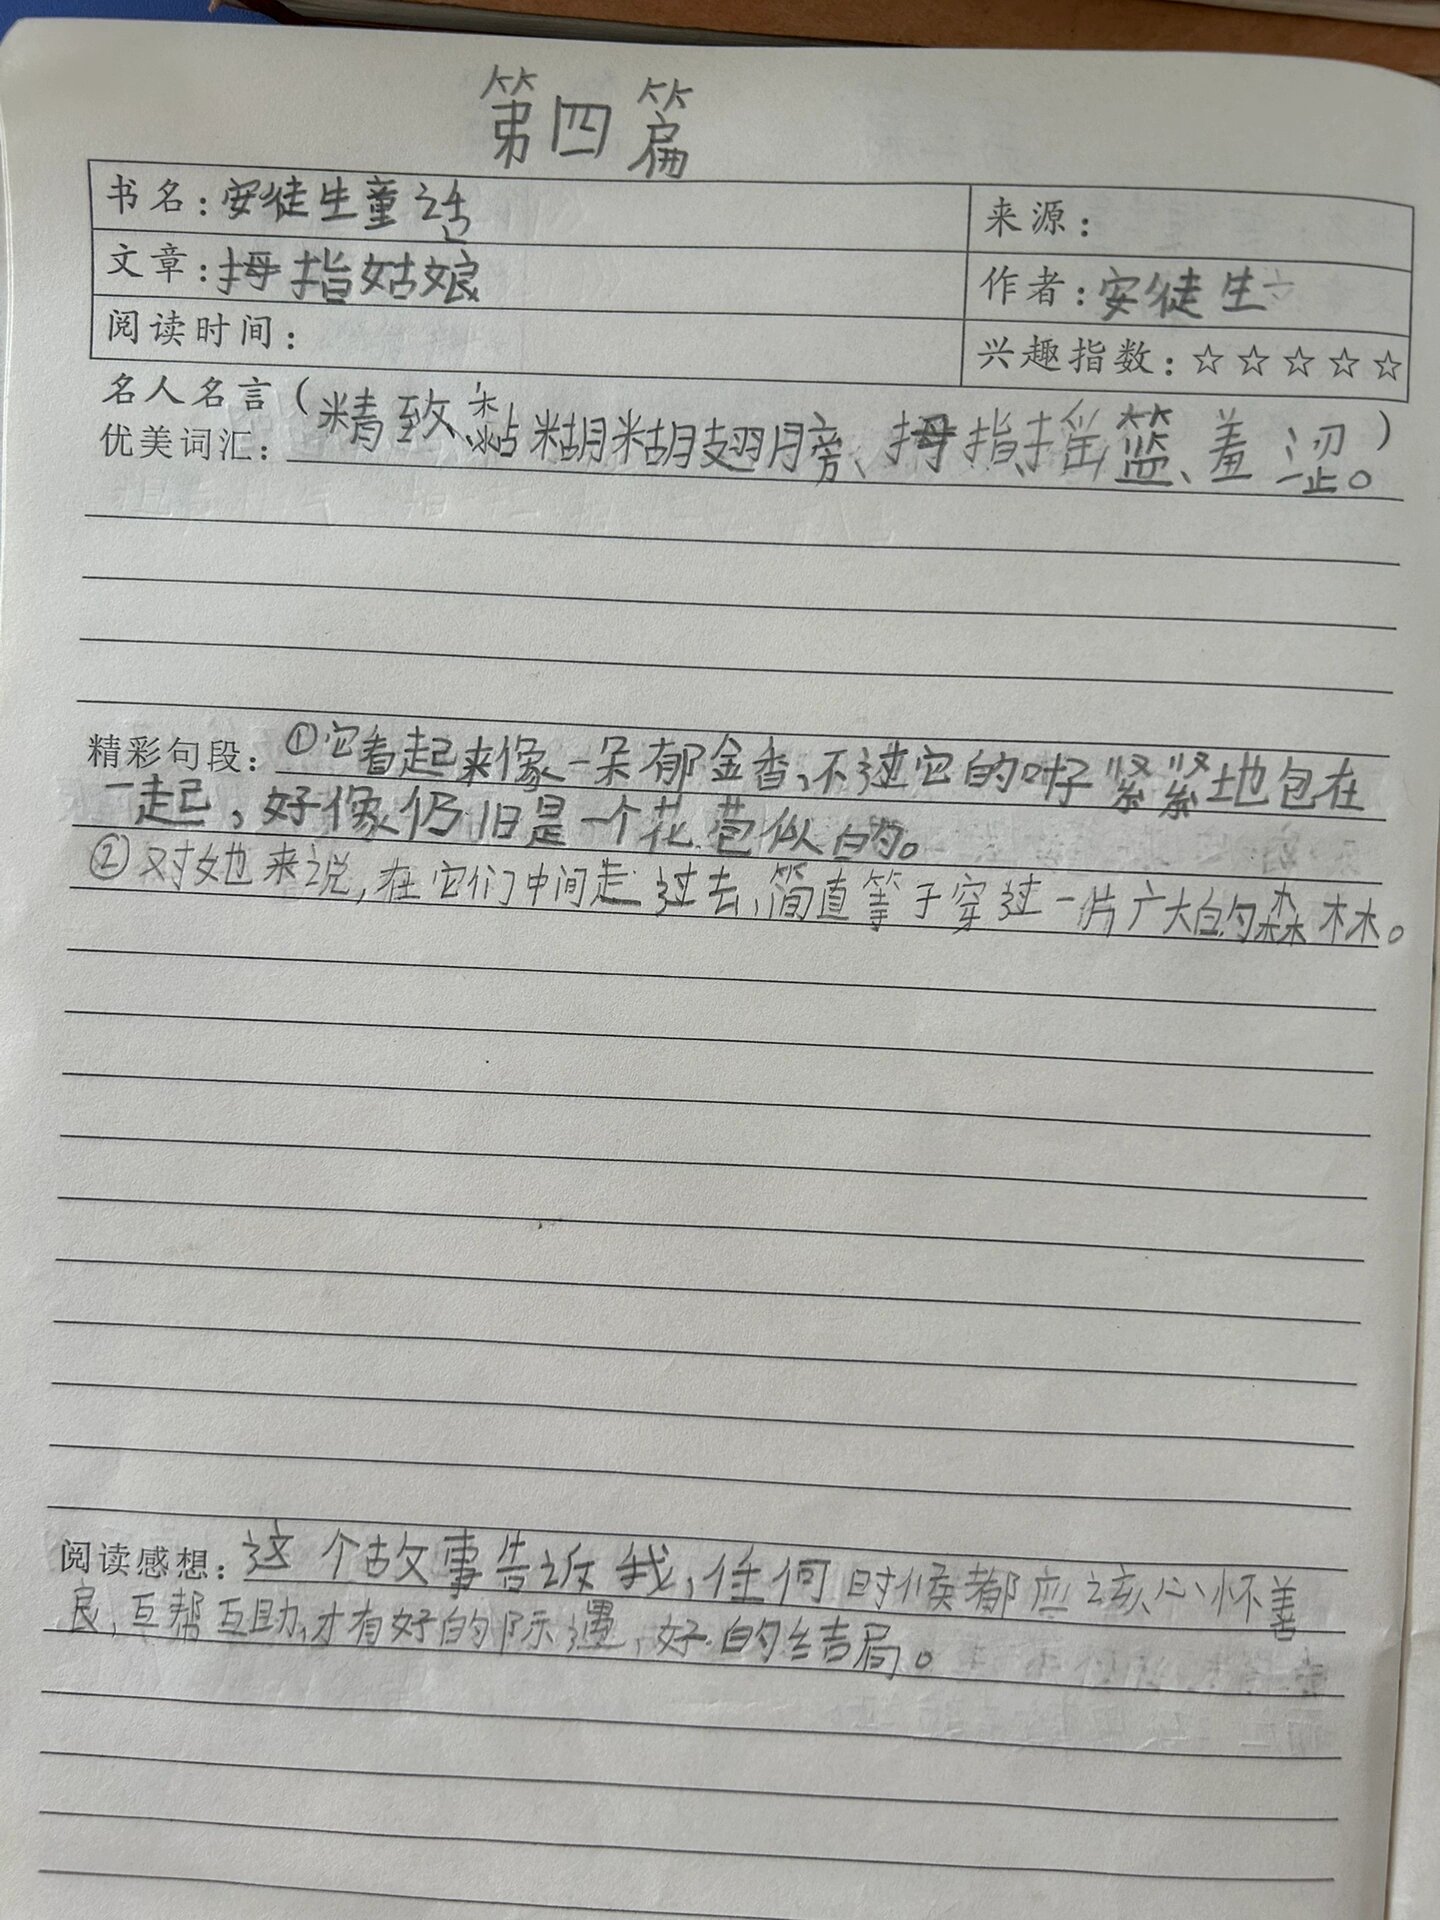 第四篇
书名：安徒生童话
来源：
文章：拇指姑娘
作者：安徒生
阅读时间：
兴趣指数：☆☆☆☆☆
名人名言（精致、黏糊糊、翅膀、拇指、摇篮、羞涩。）
优美词汇：
精彩句段：①它看起来像一朵郁金香，不过它的叶子紧紧地包在
一起，好像仍旧是一个花苞似的。
②对她来说，在它们中间走过去，简直等于穿过一片广大的森林。
阅读感想：这个故事告诉我，任何时候都应该心怀善
良，互帮互助，才有好的际遇，好的结局。